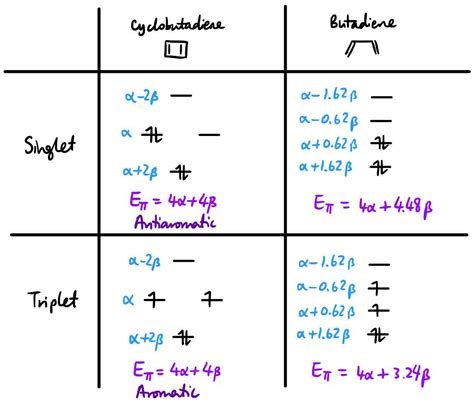 Cyclobutadiene
Butadiene
Singlet
α-2β
α
α+2β
Eπ = 4α+4β
Antiaromatic
α-1.62β
α-0.62β
α+0.62β
α+1.62β
Eπ = 4α+4.48β
Triplet
α-2β
α
α+2β
Eπ = 4α+4β
Aromatic
α-1.62β
α-0.62β
α+0.62β
α+1.62β
Eπ = 4α+3.24β